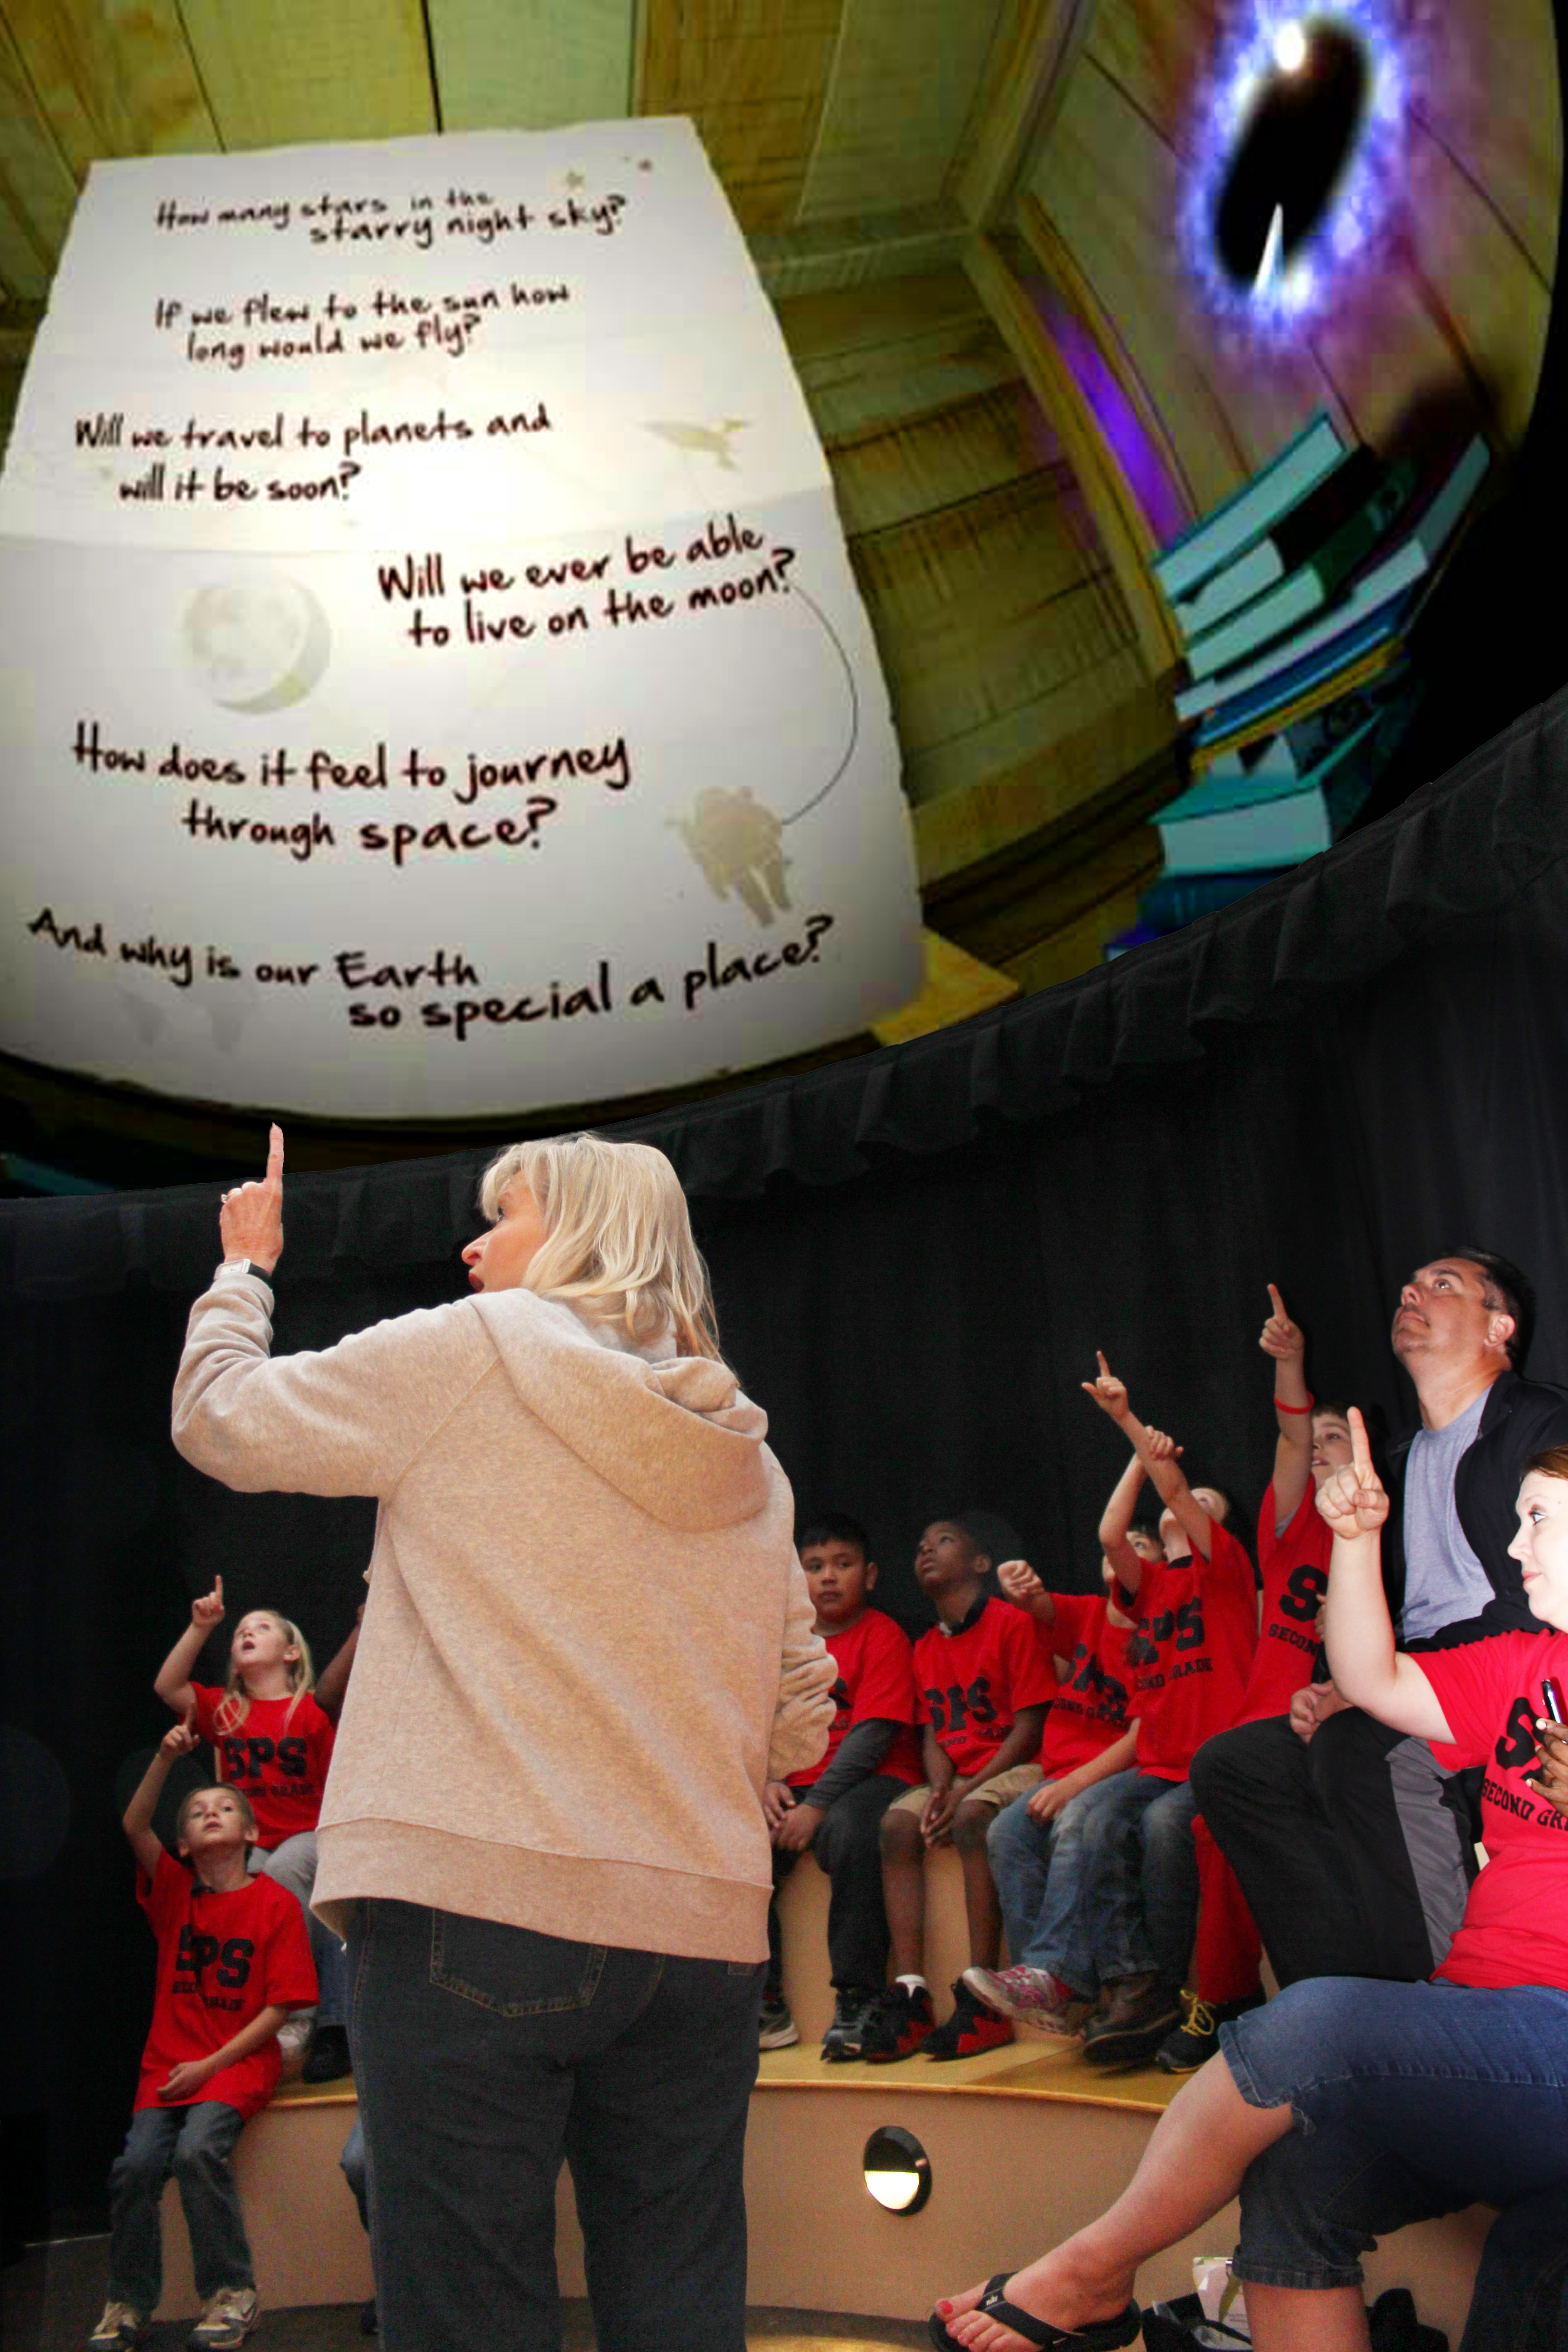 How many stars in the
starry night sky?
If we flew to the sun how
long would we fly?
Will we travel to planets and
will it be soon?
Will we ever be able
to live on the moon?
How does it feel to journey
through space?
And why is our Earth
so special a place?
S
SECON
SPS
OND GRADE
SPS
SPS
SECOND GR
SPS
OND GRADE
SPS
GRADE